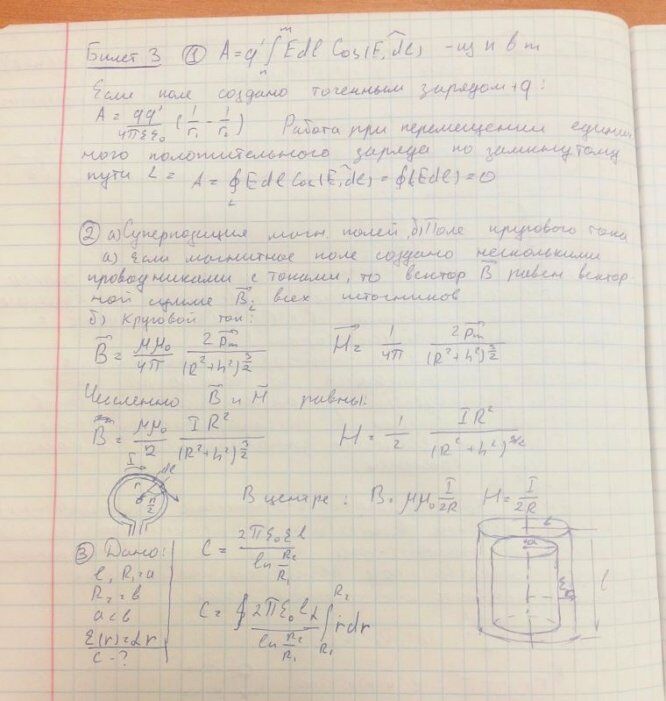 Билет 3 ① A = q' ∫ₙᵐ Edl Cos(E,^dl) - из n в m
Если поле создано точечным зарядом +q:
A = qq'/4πεε₀ (1/r₁ - 1/r₂) Работа при перемещении единич
ного положительного заряда по замкнутому
пути L = A = ∮_L Edl Cos(E,^dl) = ∮(Edl) = 0
② а) Суперпозиция магн. полей, б) Поле кругового тока
а) Если магнитное поле создано несколькими
проводниками с токами, то вектор B⃗ равен вектор
ной сумме B⃗ᵢ всех источников
б) Круговой ток:
B⃗ = μμ₀/4π 2p⃗m/(R²+h²)^3/2 H⃗ = 1/4π 2p⃗m/(R²+h²)^3/2
Численно B⃗ и H⃗ равны:
B = μμ₀/2 IR²/(R²+h²)^3/2 H = 1/2 IR²/(R²+h²)^3/2
I dl
r π/2
В центре: B = μμ₀ I/2R H = I/2R
③ Дано:
l, R₁=a
R₂=b
a<b
ε(r)=αr
C - ?
C = 2πε₀εl / ln R₂/R₁
C = ∮ 2πε₀lα / ln R₂/R₁ ∫ R₂ R₁ rdr
b
a
l